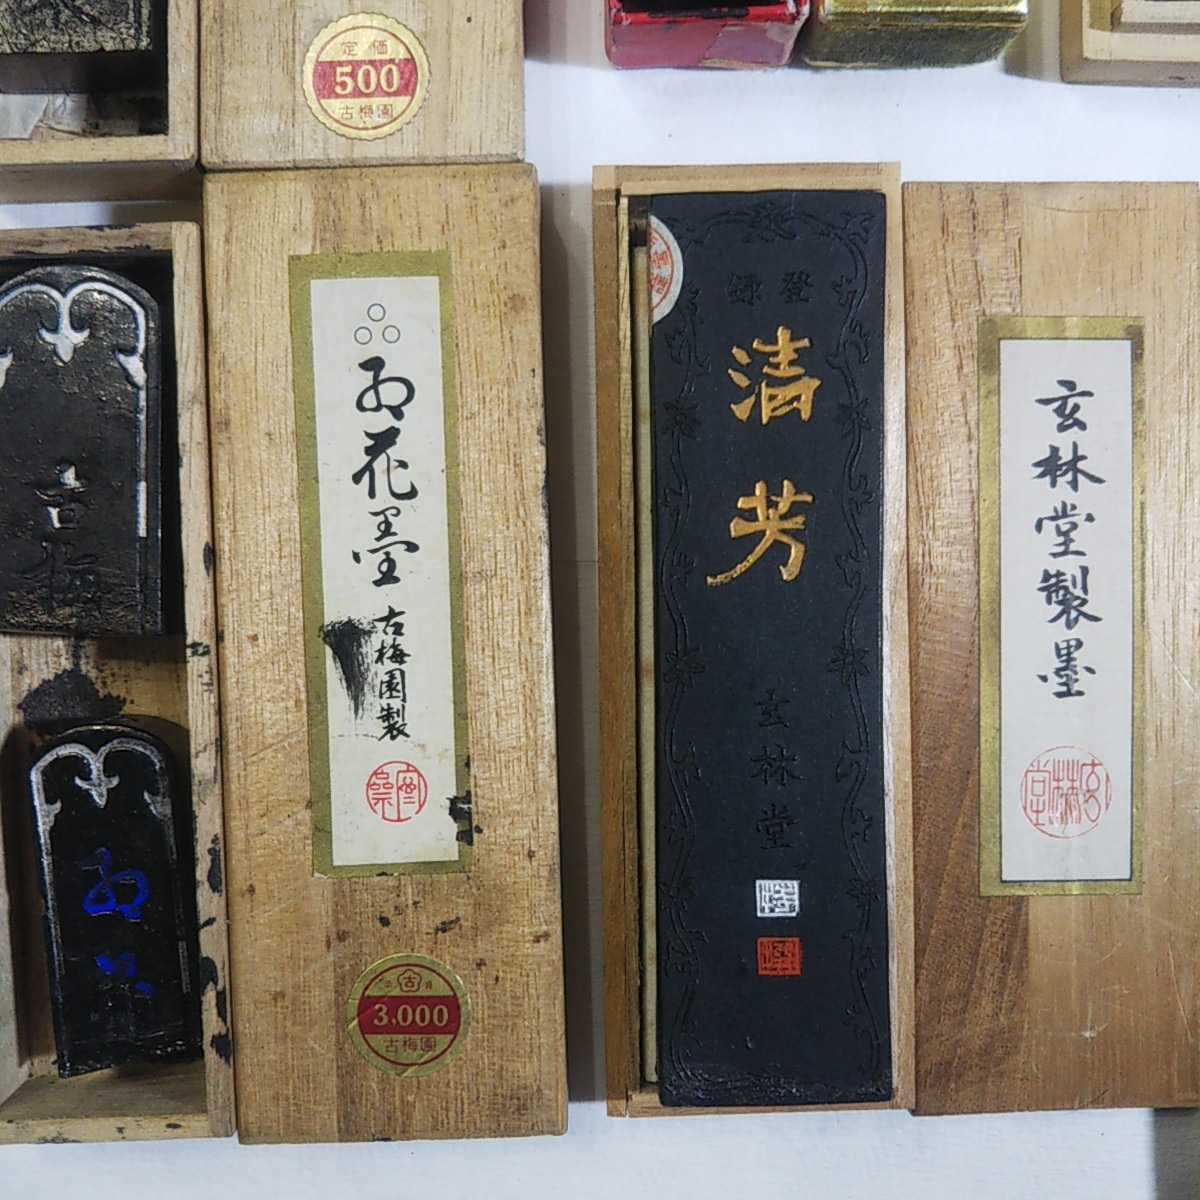 定価
500
古梅園
紅花墨
古梅園製
古
3,000
古梅園
古梅
紅
登録
清芳
玄林堂
玄林堂製墨
玄林堂